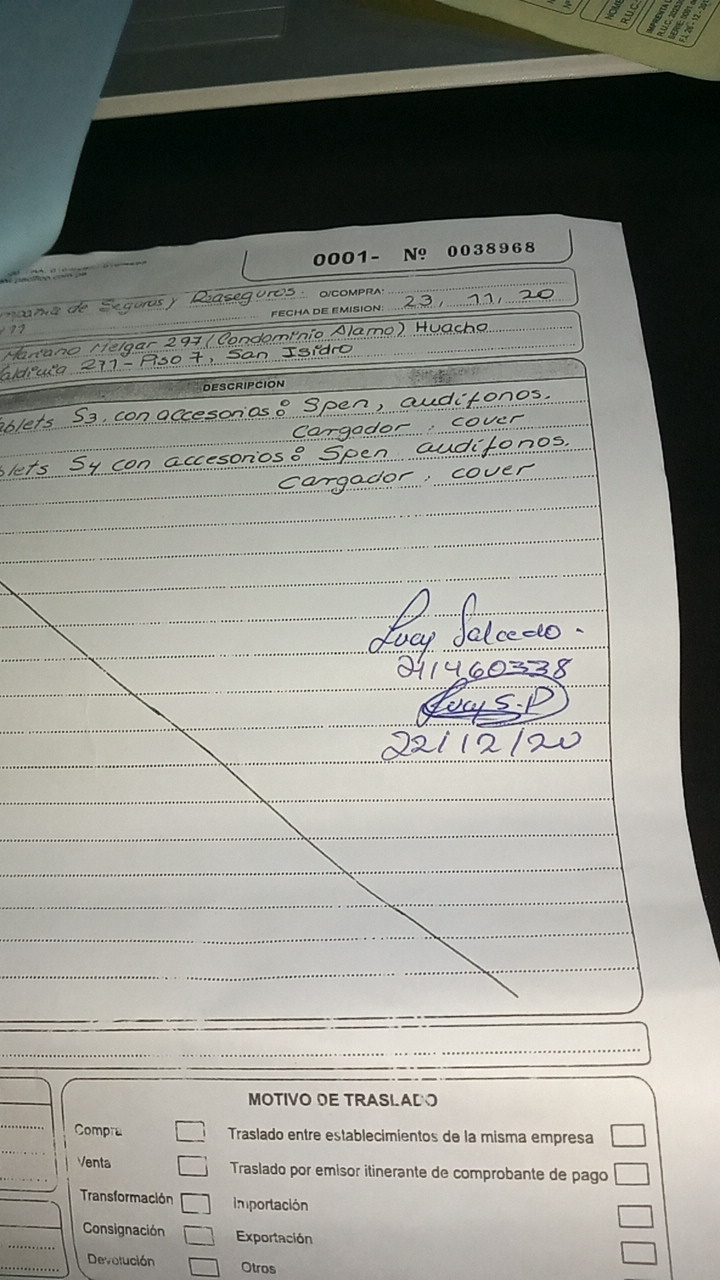 0001- Nº 0038968
de Seguros y Reaseguros. O/COMPRA:
FECHA DE EMISION: 23, 11, 20
Mariano Melgar 297 (Condominio Alamo) Huacho
271 - Piso 7, San Isidro
DESCRIPCION
ablets S3. con accesorios: Spen, audífonos.
cargador, cover
blets S4 con accesorios: Spen audífonos.
cargador, cover
Lucy Salcedo.
Lucy S.P
22/12/20
MOTIVO DE TRASLADO
Compra
Traslado entre establecimientos de la misma empresa
Venta
Traslado por emisor itinerante de comprobante de pago
Transformación
Importación
Consignación
Exportación
Devolución
Otros